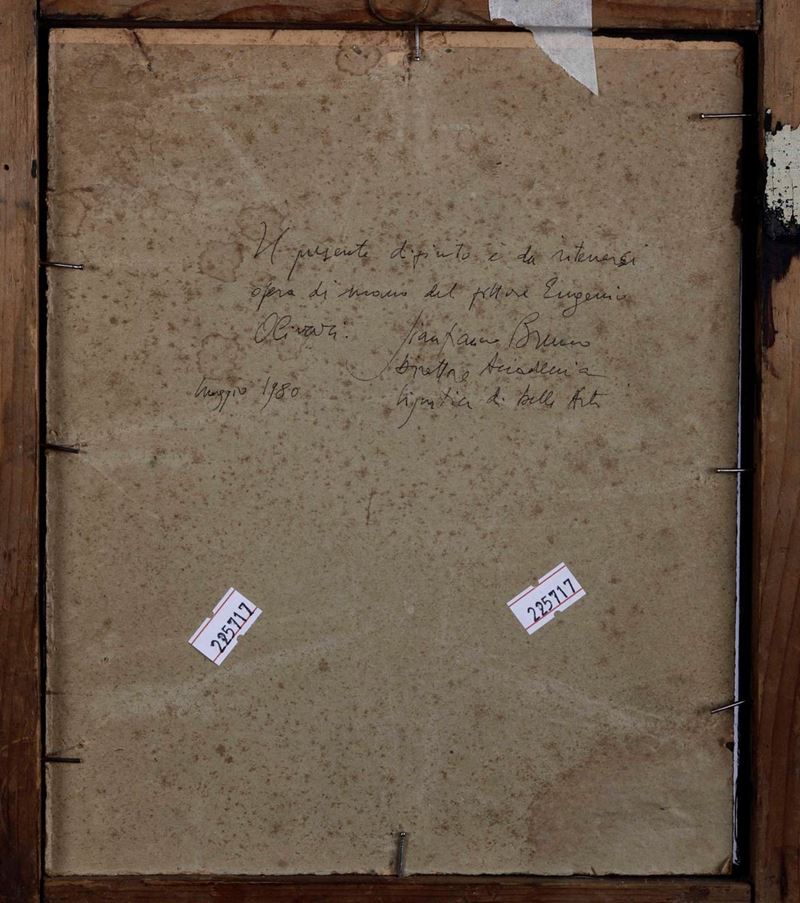 Il presente dipinto è da ritenersi
opera di mano del pittore Eugenio
Olivari. Gianfranco Bruno
Direttore Accademia
maggio 1980 Ligustica di Belle Arti
225717
225717